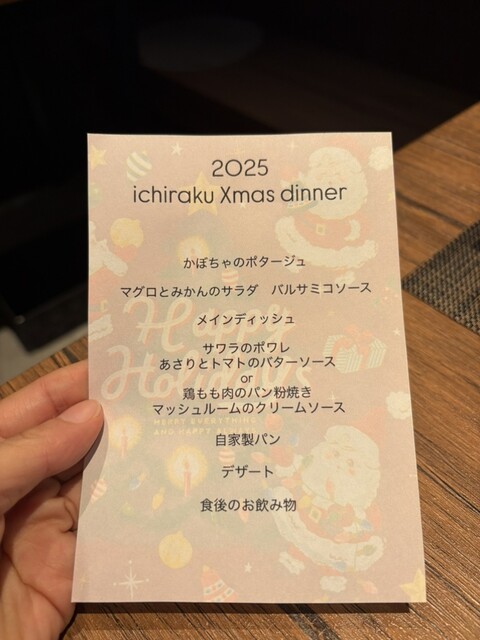 2025
ichiraku Xmas dinner
かぼちゃのポタージュ
マグロとみかんのサラダ　バルサミコソース
メインディッシュ
サワラのポワレ
あさりとトマトのバターソース
or
鶏もも肉のパン粉焼き
マッシュルームのクリームソース
自家製パン
デザート
食後のお飲み物
MERRY EVERYTHING